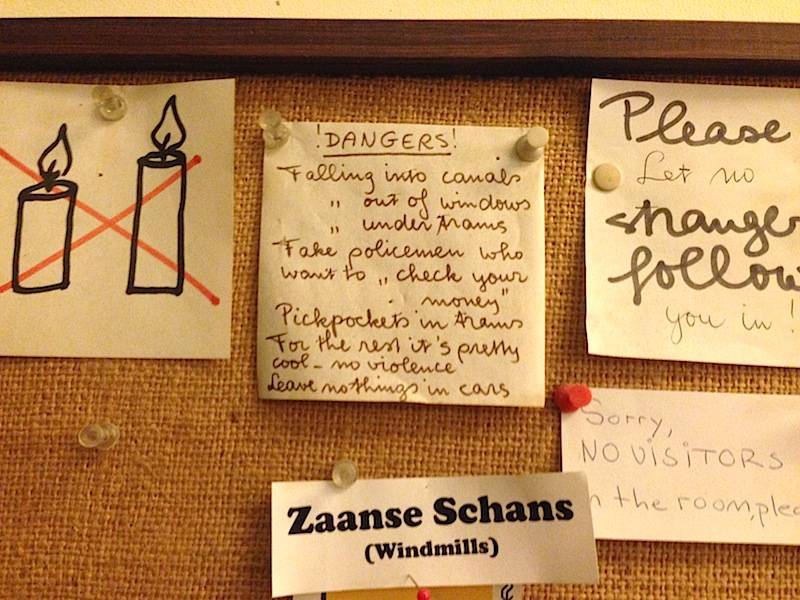 !DANGERS!
Falling into canals
" out of windows
" under trams
Fake policemen who
want to „ check your
money"
Pickpockets in trams
For the rest it's pretty
cool - no violence
Leave nothings in cars
Please
Let no
strange
follow
you in!
Sorry,
NO VISITORS
the room, plea
Zaanse Schans
(Windmills)